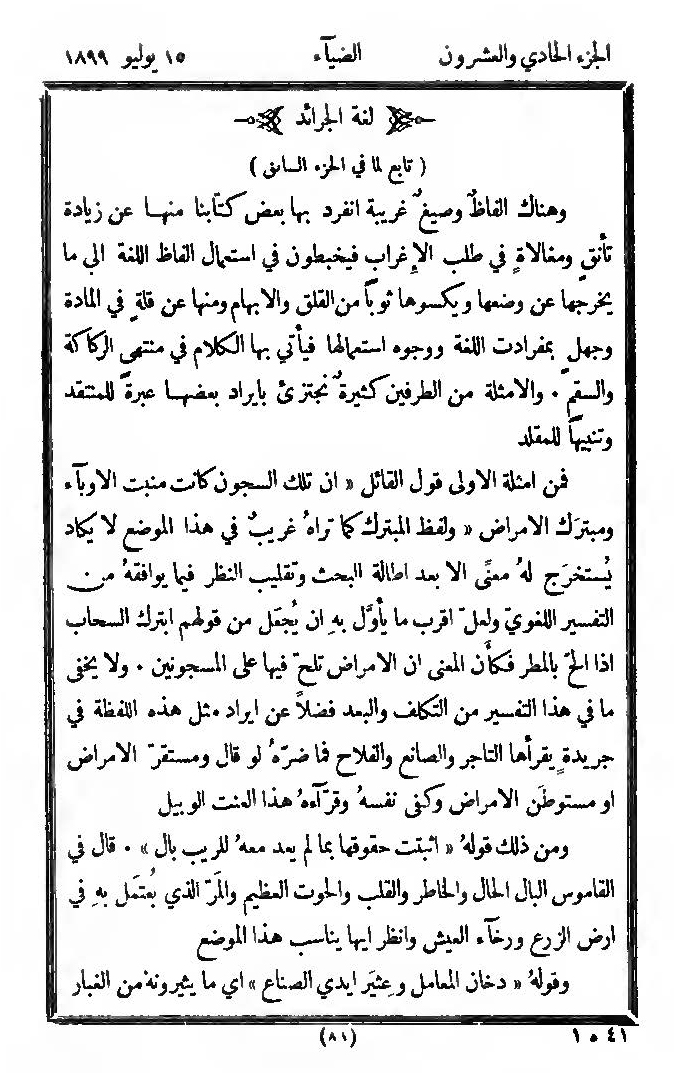 الجزء الحادي والعشرون الضيآء ١٥ يوليو ١٨٩٩
لغة الجرائد
( تابع لما في الجزء السابق )
وهناك الفاظٌ وصيغٌ غريبة انفرد بها بعض كتّابنا منها عن زيادة
تأنقٍ ومغالاةٍ في طلب الإغراب فيخبطون في استعمال الفاظ اللغة الى ما
يخرجها عن وضعها ويكسوها ثوباً من القلق والابهام ومنها عن قلةٍ في المادة
وجهلٍ بمفردات اللغة ووجوه استعمالها فيأتي بها الكلام في منتهى الركاكة
والسقم ٠ والامثلة من الطرفين كثيرةٌ نجتزئ بايراد بعضها عبرةً للمنتقد
وتنبيهاً للمقلد
فمن امثلة الاولى قول القائل « ان تلك السجون كانت منبت الاوبآء
ومبترَك الامراض « ولفظ المبترك كما تراهُ غريبٌ في هذا الموضع لا يكاد
يُستخرَج لهُ معنًى الا بعد اطالة البحث وتقليب النظر فيما يوافقهُ من
التفسير اللغويّ ولعلّ اقرب ما يأوَّل بهِ ان يُجعَل من قولهم ابترك السحاب
اذا الحّ بالمطر فكأن المعنى ان الامراض تلحّ فيها على المسجونين ٠ ولا يخفى
ما في هذا التفسير من التكلف والبعد فضلاً عن ايراد مثل هذه اللفظة في
جريدةٍ يقرأها التاجر والصانع والفلاح فما ضرّهُ لو قال ومستقرّ الامراض
او مستوطَن الامراض وكفى نفسهُ وقرّآءهُ هذا العنت الوبيل
ومن ذلك قولهُ « اثبتت حقوقها بما لم يعد معهُ للريب بال » ٠ قال في
القاموس البال الحال والخاطر والقلب والحوت العظيم والمَرّ الذي يُعتمَل بهِ في
ارض الزرع ورخآء العيش وانظر ايها يناسب هذا الموضع
وقولهُ « دخان المعامل وعِثيَر ايدي الصناع » اي ما يثيرونهُ من الغبار
٤١ ٥ ١ (٨١)